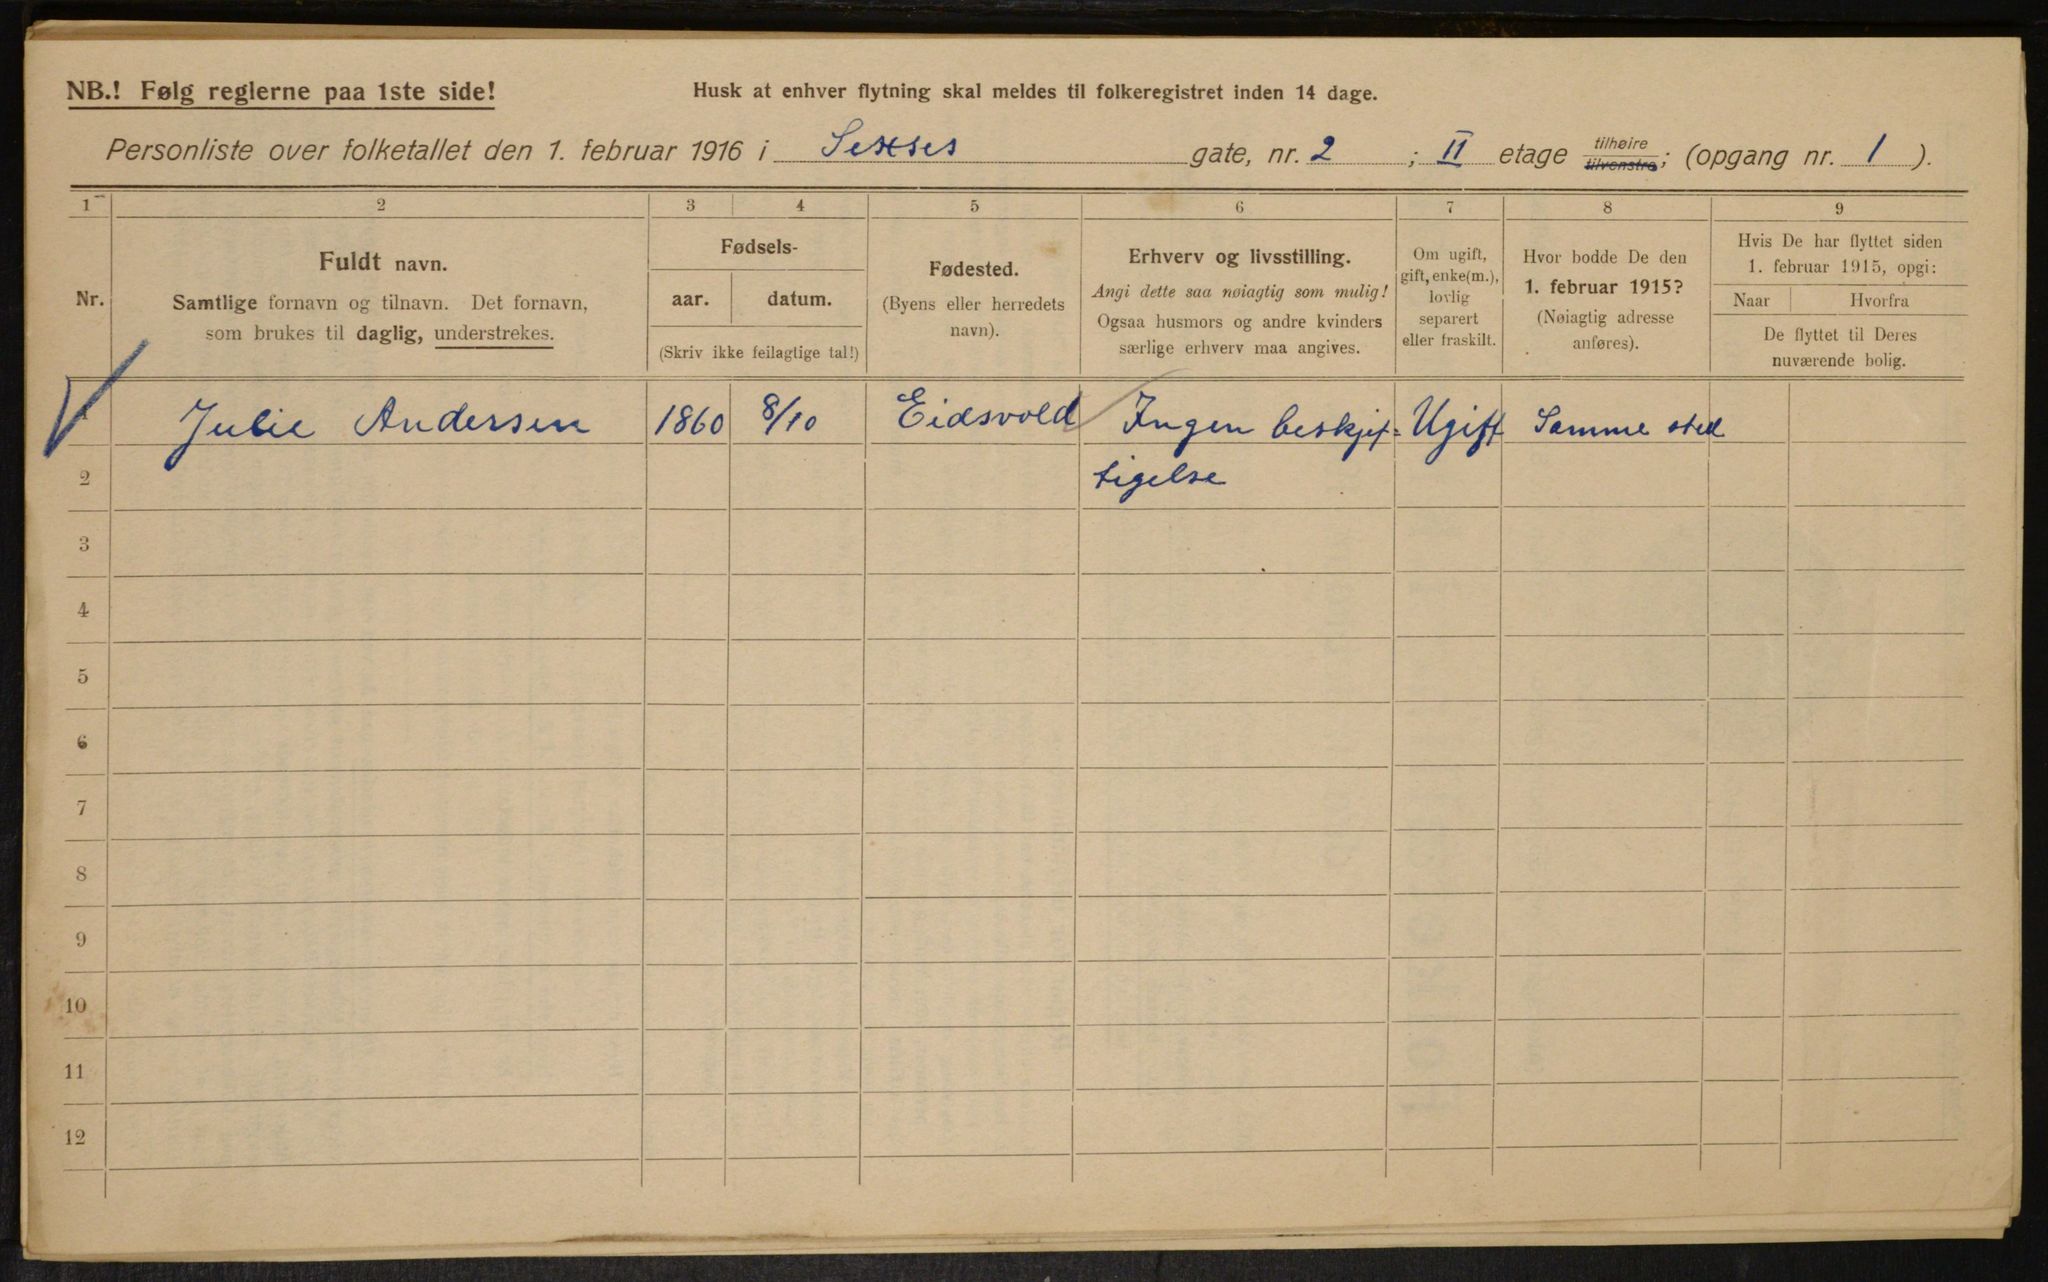 NB.! Følg reglerne paa 1ste side!
Husk at enhver flytning skal meldes til folkeregistret inden 14 dage.
Personliste over folketallet den 1. februar 1916 i Sexses gate, nr. 2 ; II etage tilhøire tilvenstre; (opgang nr. 1 ).
1 2 3 4 5 6 7 8 9
Nr.
Fuldt navn.
Samtlige fornavn og tilnavn. Det fornavn,
som brukes til daglig, understrekes.
Fødsels-
aar. datum.
(Skriv ikke feilagtige tal!)
Fødested.
(Byens eller herredets
navn).
Erhverv og livsstilling.
Angi dette saa nøiagtig som mulig!
Ogsaa husmors og andre kvinders
særlige erhverv maa angives.
Om ugift,
gift, enke(m.),
lovlig
separert
eller fraskilt.
Hvor bodde De den
1. februar 1915?
(Nøiagtig adresse
anføres).
Hvis De har flyttet siden
1. februar 1915, opgi:
Naar Hvorfra
De flyttet til Deres
nuværende bolig.
1 Julie Andersen 1860 8/10 Eidsvold Ingen beskjef= Ugift Samme sted
2 tigelse
3
4
5
6
7
8
9
10
11
12